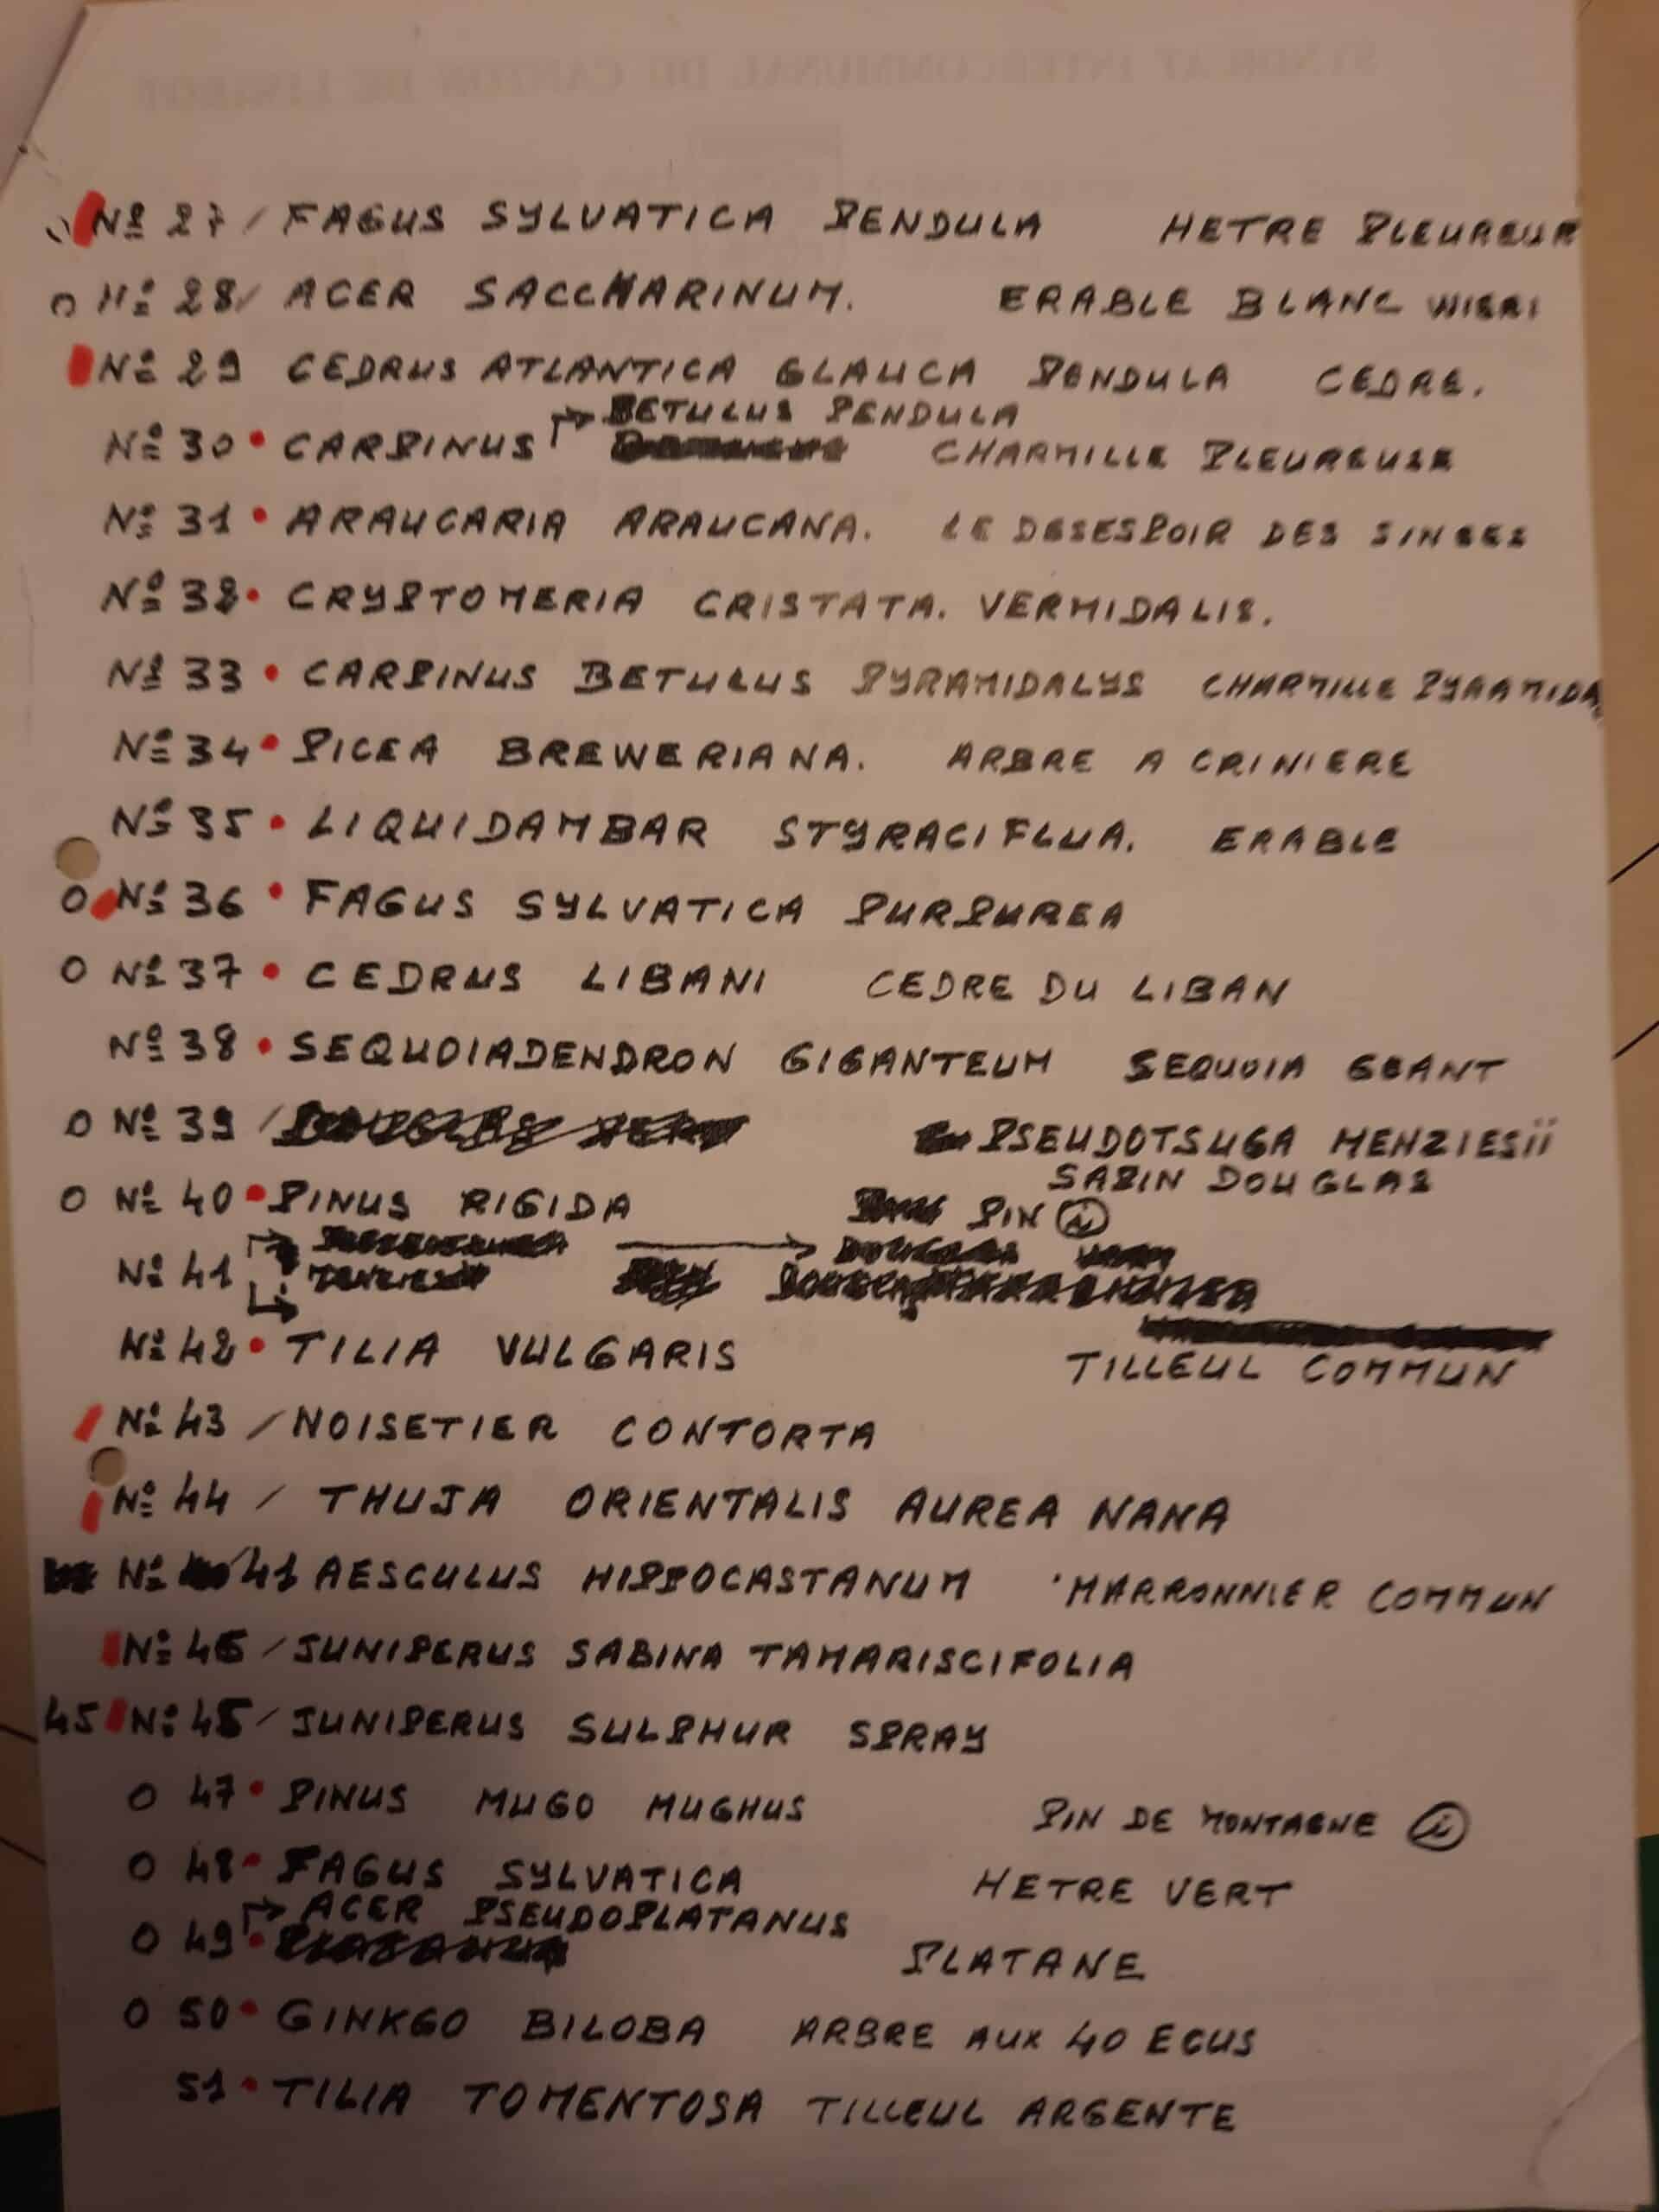 Nº 27 / FAGUS SYLVATICA PENDULA HETRE PLEUREUR
O Nº 28 / ACER SACCHARINUM. ERABLE BLANC WIERI
Nº 29 CEDRUS ATLANTICA GLAUCA PENDULA CEDRE.
BETULUS PENDULA
Nº 30 • CARPINUS CHARMILLE PLEUREUSE
Nº 31 • ARAUCARIA ARAUCANA. LE DESESPOIR DES SINGES
Nº 32 • CRYPTOMERIA CRISTATA. VERMIDALIS.
Nº 33 • CARPINUS BETULUS PYRAMIDALYS CHARMILLE PYRAMIDA
Nº 34 • PICEA BREWERIANA. ARBRE A CRINIERE
Nº 35 • LIQUIDAMBAR STYRACIFLUA. ERABLE
O Nº 36 • FAGUS SYLVATICA PURPUREA
O Nº 37 • CEDRUS LIBANI CEDRE DU LIBAN
Nº 38 • SEQUOIADENDRON GIGANTEUM SEQUOIA GEANT
O Nº 39 / PSEUDOTSUGA MENZIESII
SAPIN DOUGLAS
O Nº 40 • PINUS RIGIDA PIN i
Nº 41
Nº 42 • TILIA VULGARIS TILLEUL COMMUN
Nº 43 / NOISETIER CONTORTA
Nº 44 / THUJA ORIENTALIS AUREA NANA
Nº 41 AESCULUS HIPPOCASTANUM MARRONNIER COMMUN
Nº 46 / JUNIPERUS SABINA TAMARISCIFOLIA
45 Nº 45 / JUNIPERUS SULPHUR SPRAY
O 47 • PINUS MUGO MUGHUS PIN DE MONTAGNE i
O 48 • FAGUS SYLVATICA HETRE VERT
ACER PSEUDOPLATANUS
O 49 • PLATANE
O 50 • GINKGO BILOBA ARBRE AUX 40 ECUS
51 • TILIA TOMENTOSA TILLEUL ARGENTE